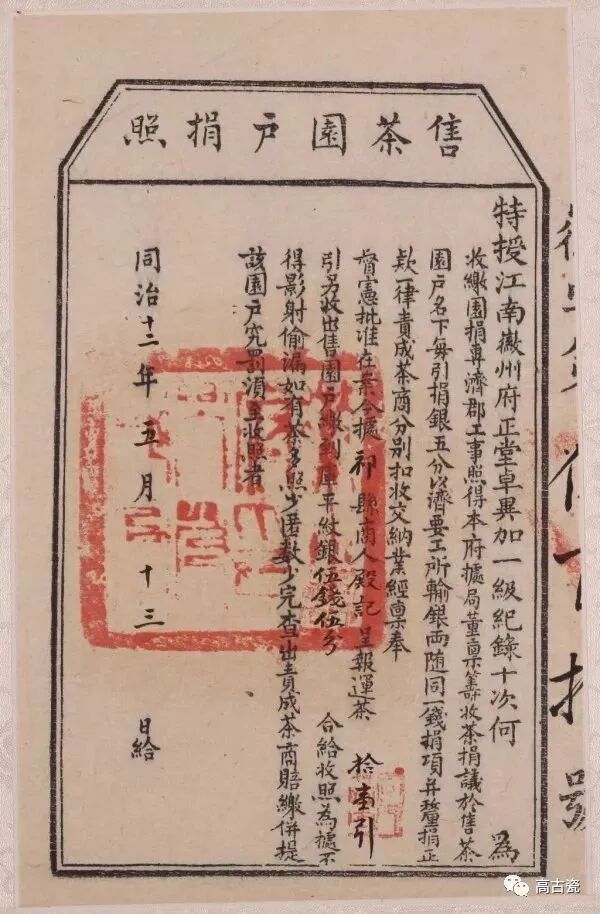 售茶園戶捐照
特授江南徽州府正堂卓異加一級紀錄十次何 為
收繳園捐專濟郡工事照得本府據局董稟籌收茶捐議於售茶
園戶名下每引捐銀五分以濟要工所輸銀兩隨同一錢捐項并釐捐正
款一律責成茶商分別扣收交納業經稟奉
督憲批准在案今據 祁縣商人殿記 呈報運茶 拾壹引
引另收出售園戶繳到庫平紋銀伍錢伍分 合給收照為據不
得影射偷漏如有茶多照少匿數少完查出責成茶商賠繳併提
該園戶究罰須至收照者
同治十二年五月十三 日給
高古瓷